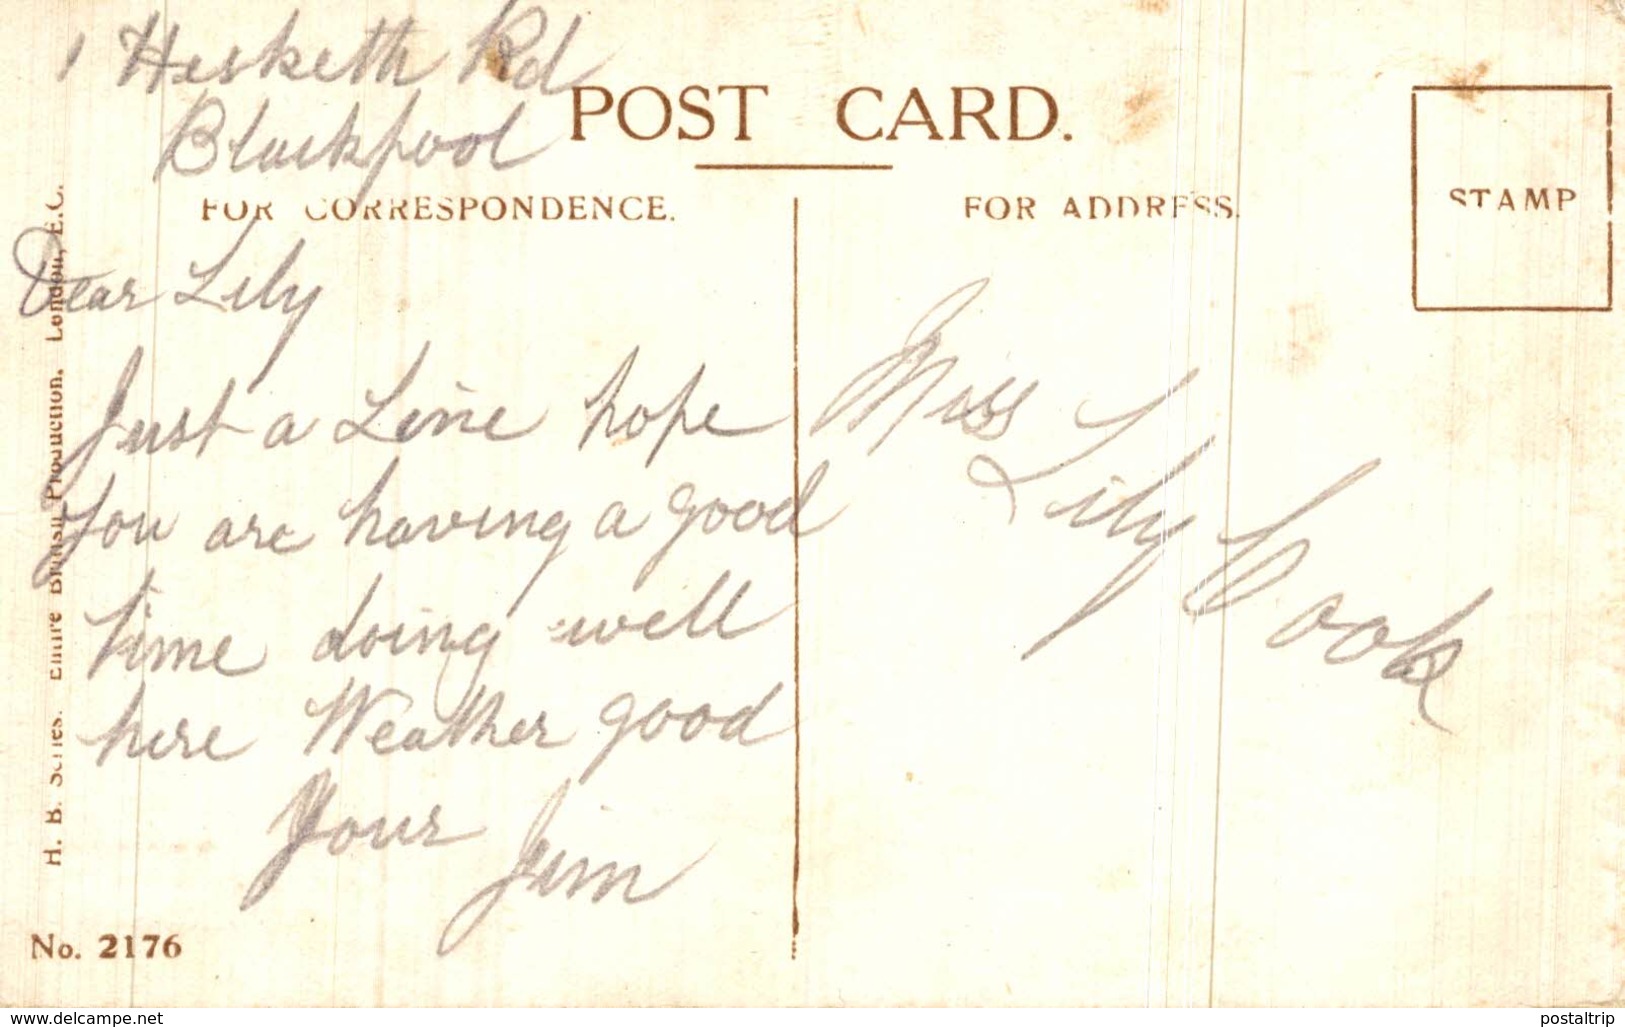 1 Hesketh Rd
Blackpool
POST CARD.
FOR CORRESPONDENCE.
FOR ADDRESS.
STAMP
Dear Lily
Just a Line hope
you are having a good
time doing well
here Weather good
Your Jim
Miss Lily Cook
H. B. Series. Entire British Production, London, E.C.
No. 2176
www.delcampe.net
postaltrip